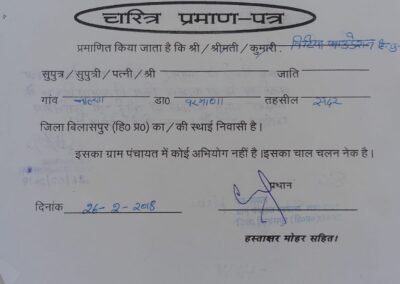 चरित्र प्रमाण-पत्र
प्रमाणित किया जाता है कि श्री/श्रीमती/कुमारी.
सुपुत्र/सुपुत्री/पत्नी/श्री जाति
गांव डा० तहसील सदर
जिला बिलासपुर (हि० प्र०) का/की स्थाई निवासी है।
इसका ग्राम पंचायत में कोई अभियोग नहीं है।इसका चाल चलन नेक है।
प्रधान
दिनांक 26-2-2018
हस्ताक्षर मोहर सहित।